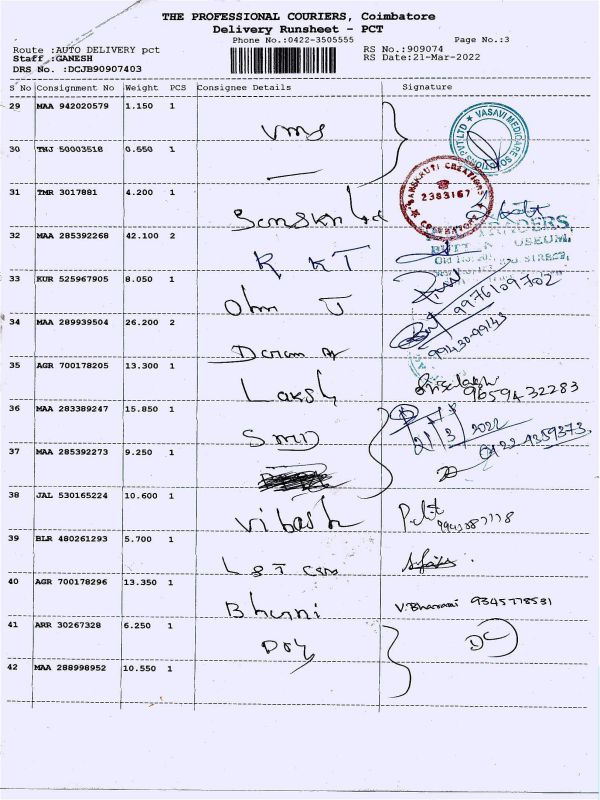 THE PROFESSIONAL COURIERS, Coimbatore
Delivery Runsheet - PCT
Phone No.:0422-3505555 Page No.:3
Route :AUTO DELIVERY pct RS No.:909074
Staff :GANESH RS Date:21-Mar-2022
DRS No. :DCJB90907403
S No Consignment No Weight PCS Consignee Details Signature
29 MAA 942020579 1.150 1
vms
VASAVI MEDICARE SO PVT LTD
30 TNJ 50003518 0.650 1
31 TMR 3017881 4.200 1
2383167
32 MAA 285392268 42.100 2
K K T
33 KUR 525967905 8.050 1
Ohm J
9976109702
34 MAA 289939504 26.200 2
99430-99143
35 AGR 700178205 13.300 1
Laksh
96594 32283
36 MAA 283389247 15.850 1
SMD
21/3/2022
0422 4359373
37 MAA 285392273 9.250 1
38 JAL 530165224 10.600 1
Vikash
39 BLR 480261293 5.700 1
L&T
40 AGR 700178296 13.350 1
V. Bharani 9345778531
41 ARR 30267328 6.250 1
42 MAA 288998952 10.550 1